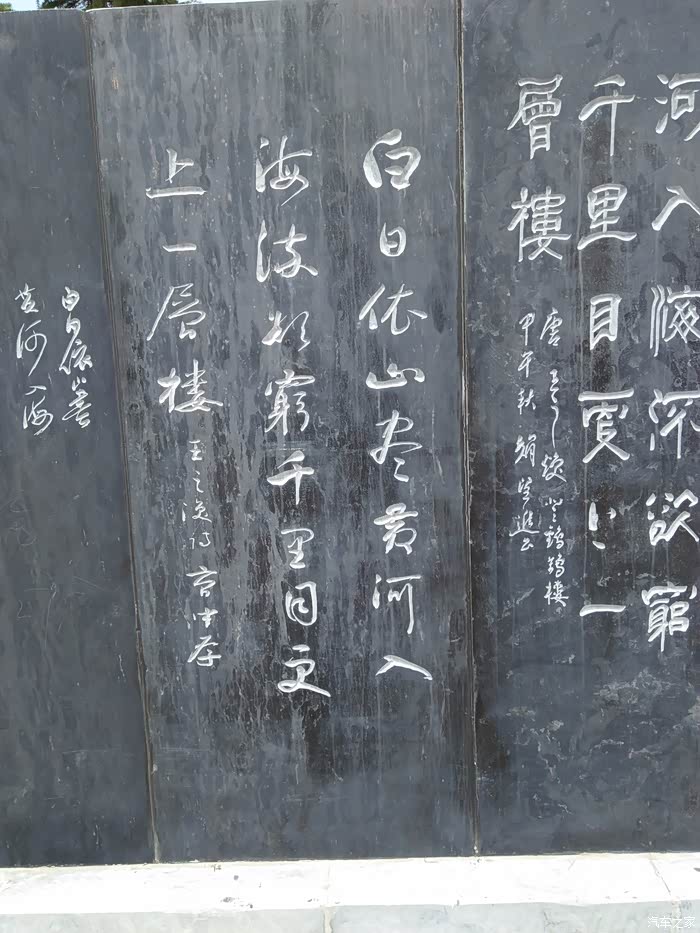 河入海流欲窮
千里目更上一
層樓
唐王之渙登鸛鵲樓
甲午秋
白日依山尽黄河入
海流欲窮千里目更
上一层楼
王之渙诗
白日依山尽
黄河入海
汽车之家